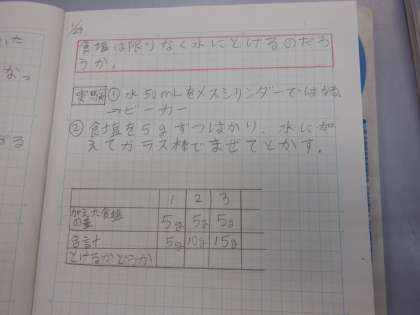 1/29
食塩は限りなく水にとけるのだろ
うか。
実験 ① 水50mLをメスシリンダーではかる
→ビーカー
② 食塩を5gずつはかり、水に加
えてガラス棒でまぜてとかす。
1 2 3
加えた食塩の量 5g 5g 5g
合計 5g 10g 15g
とけるかどうか